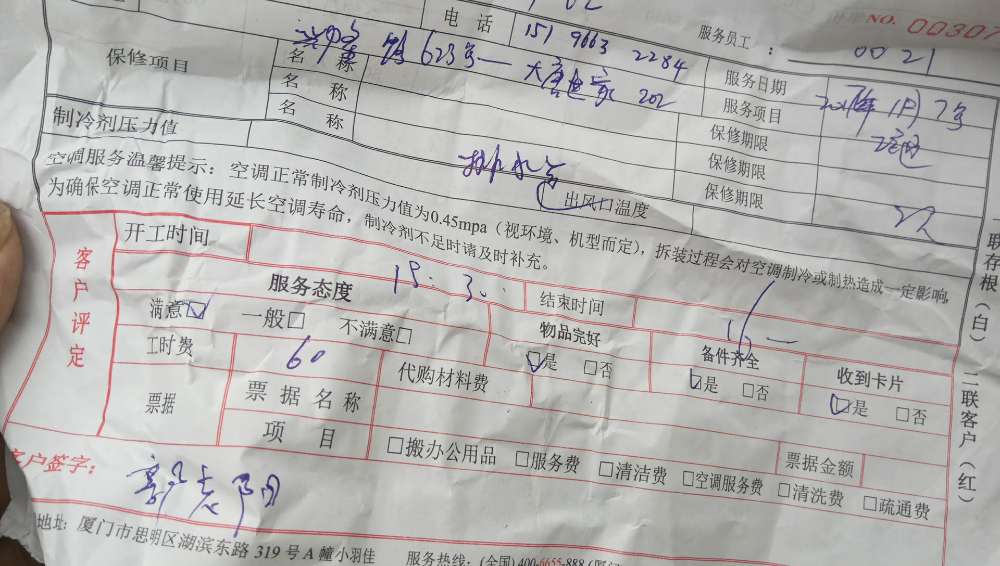 NO. 00307
电 话 151 9663 2284 服务员工： 0021
623号 大唐世家 202
保修项目 名 称 服务日期
名 称 服务项目
名 称 保修期限
制冷剂压力值 保修期限
排水管 出风口温度 保修期限
空调服务温馨提示：空调正常制冷剂压力值为0.45mpa（视环境、机型而定），拆装过程会对空调制冷或制热造成一定影响，
为确保空调正常使用延长空调寿命，制冷剂不足时请及时补充。
客户评定
开工时间 结束时间
服务态度 物品完好 备件齐全 收到卡片
满意☑ 一般□ 不满意□ ☑是 □否 ☑是 □否 ☑是 □否
工时费 60 代购材料费
票据 票据名称 票据金额
项 目 □搬办公用品 □服务费 □清洁费 □空调服务费 □清洗费 □疏通费
客户签字：
地址：厦门市思明区湖滨东路 319 号 A 幢小羽佳 服务热线：(全国) 400-6655-888
一联存根（白） 二联客户（红）